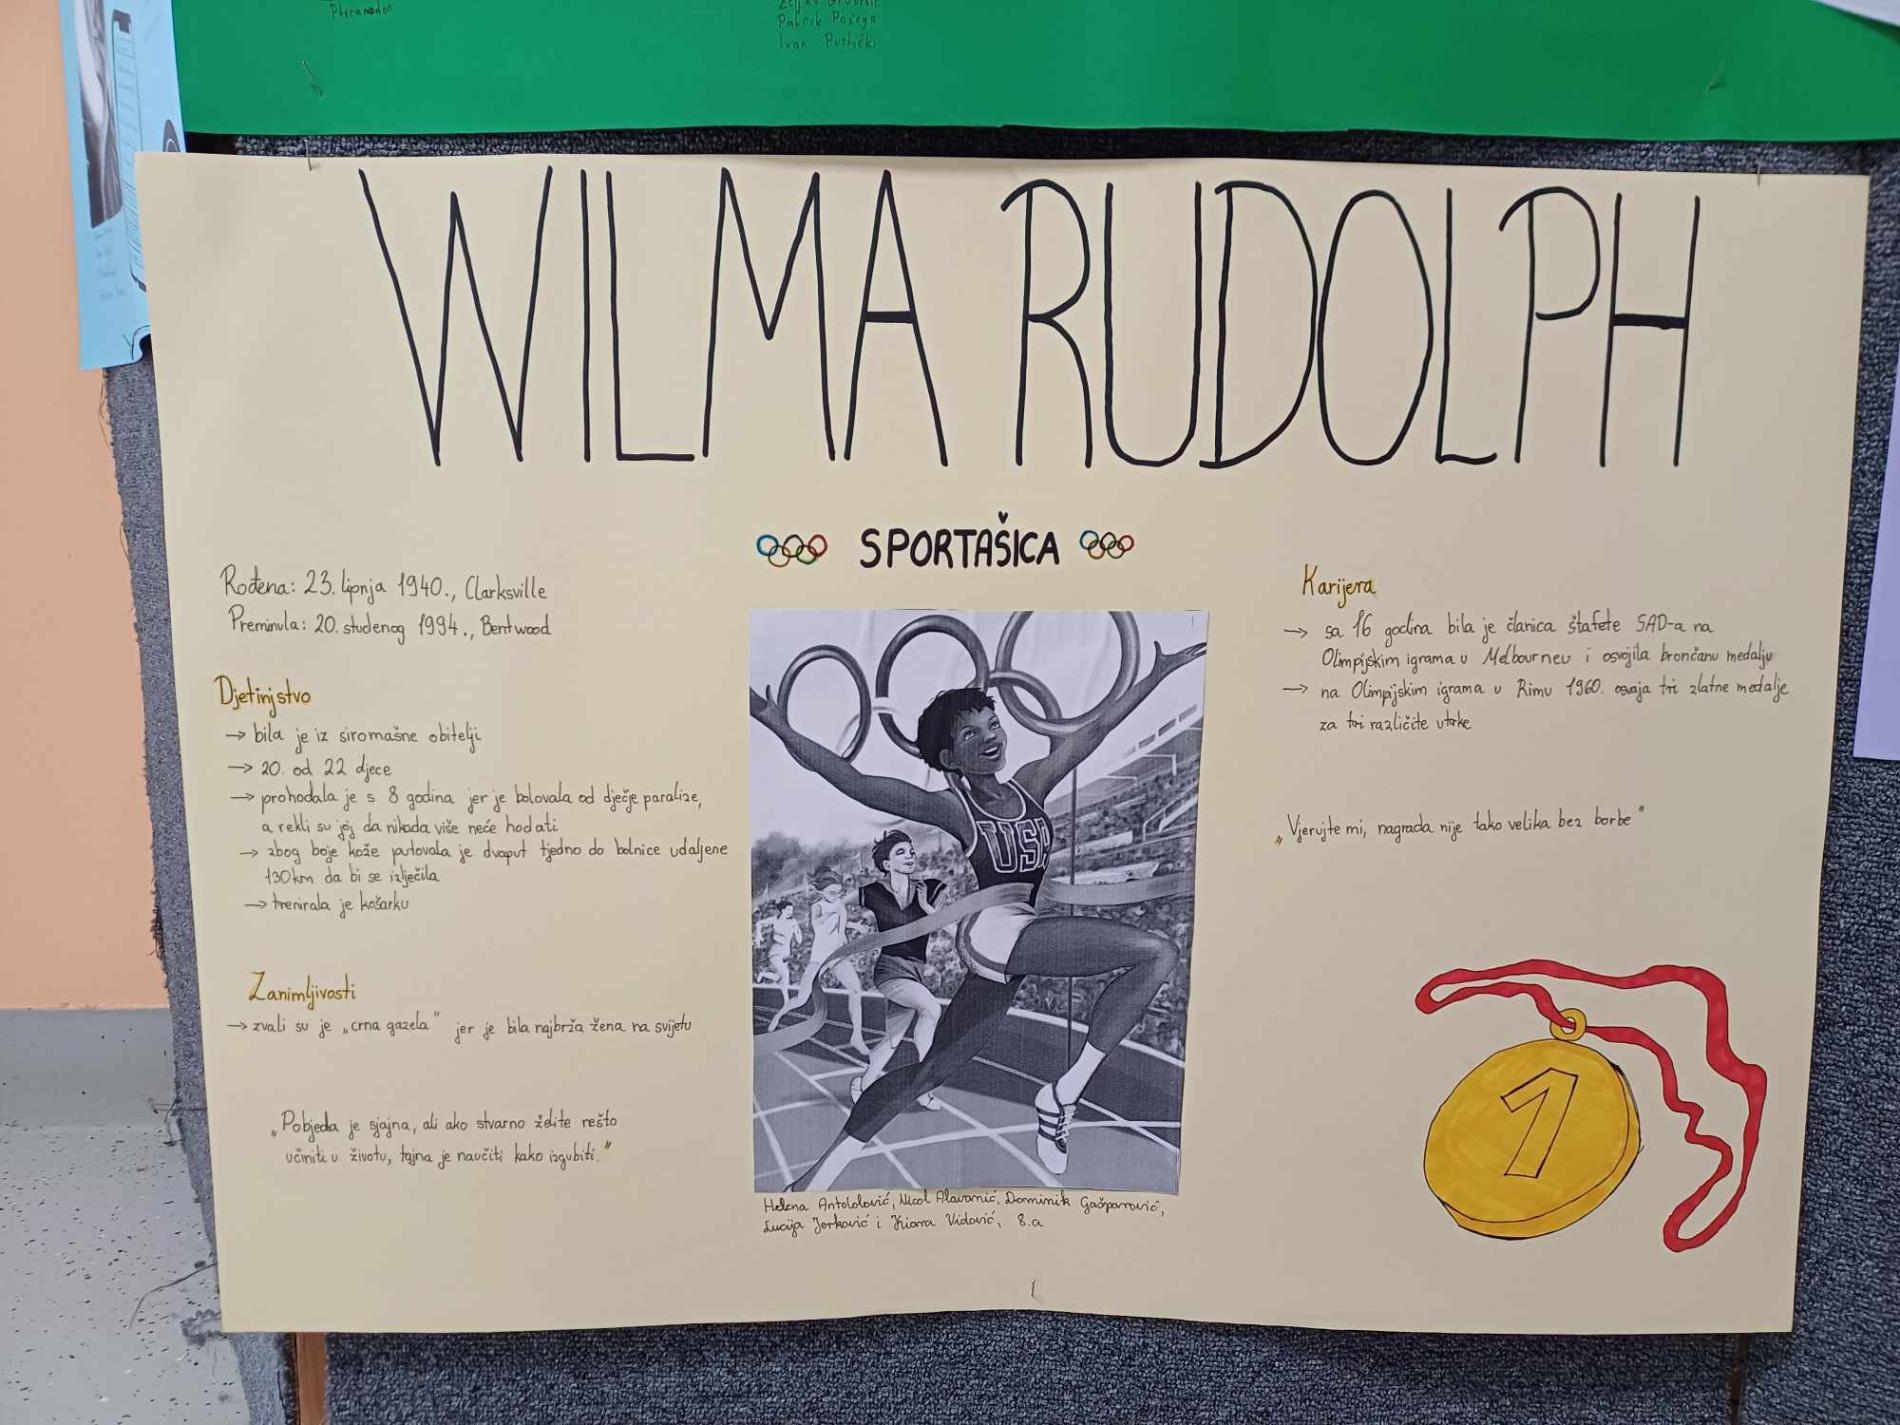 Pteranodon
Patrik Požega
Ivan Pustički
WILMA RUDOLPH
SPORTAŠICA
Rođena: 23. lipnja 1940., Clarksville
Preminula: 20. studenog 1994., Bentwood
Djetinjstvo
→ bila je iz siromašne obitelji
→ 20. od 22 djece
→ prohodala je s 8 godina jer je bolovala od dječje paralize,
a rekli su joj da nikada više neće hodati
→ zbog boje kože putovala je dvaput tjedno do bolnice udaljene
130km da bi se izlječila
→ trenirala je košarku
Zanimljivosti
→ zvali su je „crna gazela" jer je bila najbrža žena na svijetu
„Pobjeda je sjajna, ali ako stvarno želite nešto
učiniti u životu, tajna je naučiti kako izgubiti."
USA
Helena Antololović, Nicol Alavanić, Dominik Gašparović,
Lucija Jorković i Kiara Vidović, 8.a
Karijera
→ sa 16 godina bila je članica štafete SAD-a na
Olimpijskim igrama u Melbourneu i osvojila brončanu medalju
→ na Olimpijskim igrama u Rimu 1960. osvaja tri zlatne medalje
za tri različite utrke
„Vjerujte mi, nagrada nije tako velika bez borbe"
1